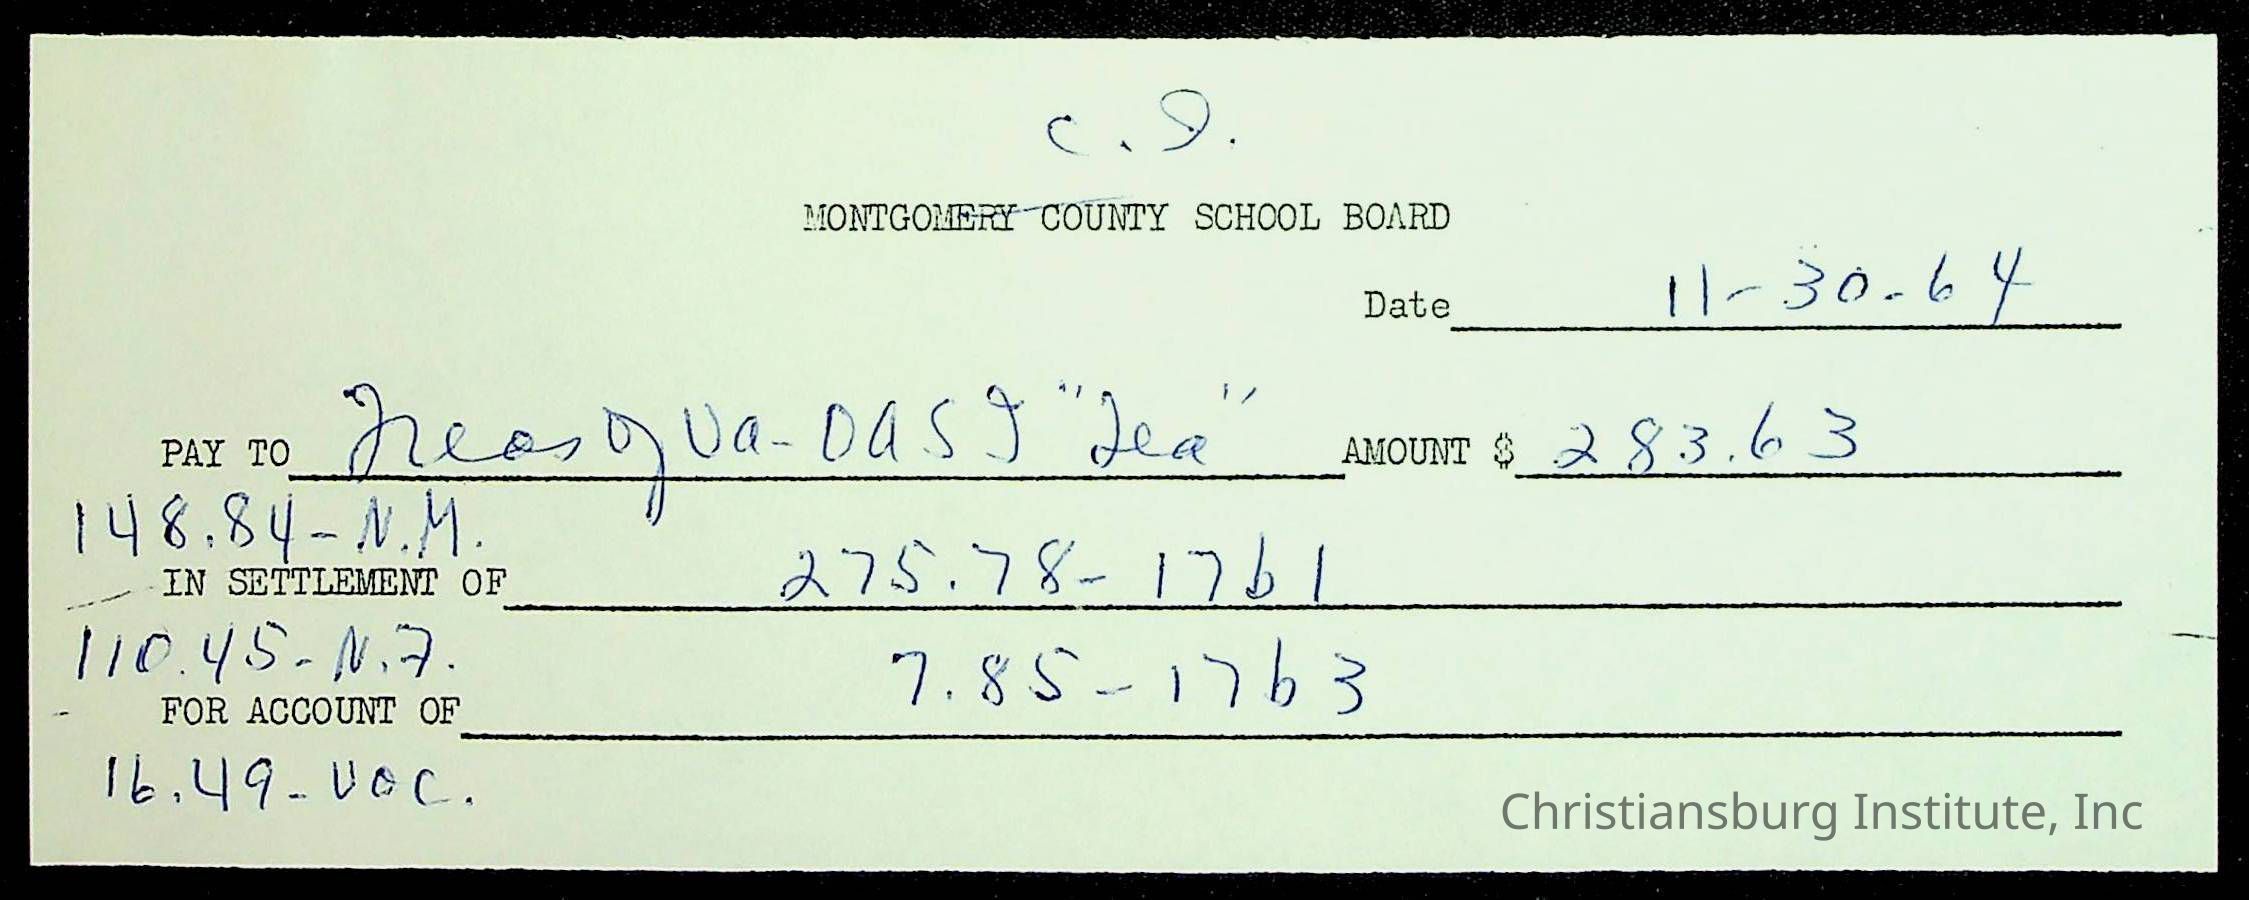 C. I.
MONTGOMERY COUNTY SCHOOL BOARD
Date 11-30-64
PAY TO Treas of Va-OASI "Tea" AMOUNT $ 283.63
148.84-N.M.
IN SETTLEMENT OF 275.78-1761
110.45-N.F.
7.85-1763
FOR ACCOUNT OF
16.49-Voc.
Christiansburg Institute, Inc